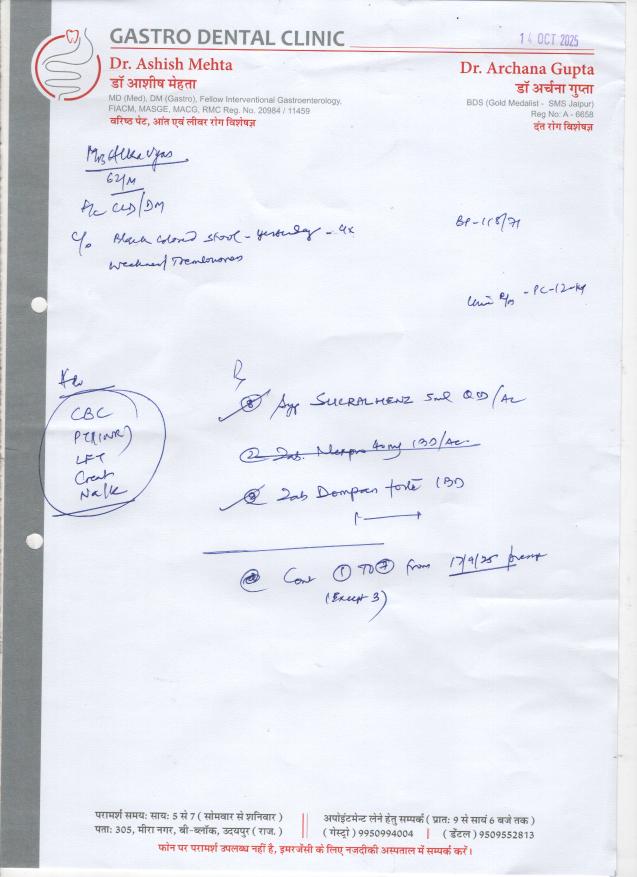 GASTRO DENTAL CLINIC
14 OCT 2025
Dr. Ashish Mehta
डॉ आशीष मेहता
MD (Med), DM (Gastro), Fellow Interventional Gastroenterology,
FIACM, MASGE, MACG, RMC Reg. No. 20984 / 11459
वरिष्ठ पेट, आंत एवं लीवर रोग विशेषज्ञ
Dr. Archana Gupta
डॉ अर्चना गुप्ता
BDS (Gold Medalist - SMS Jaipur)
Reg No: A - 6658
दंत रोग विशेषज्ञ
62/M
CLD/DM
BP-118/71
C/o Black colored stool - yesterday - 4x
Weakness/
Adv
CBC
PT(INR)
LFT
Creat
Na/K
Rx
① Syp SUCRALMENZ 5ml QID/AC
2 Tab. 40mg 1BD/AC
③ Tab forte 1BD
④ Cont ① TO ⑦ from 17/9/25
(Except 3)
परामर्श समय: सायं: 5 से 7 ( सोमवार से शनिवार )
पता: 305, मीरा नगर, बी-ब्लॉक, उदयपुर ( राज. )
अपोइंटमेन्ट लेने हेतु सम्पर्क ( प्रात: 9 से सायं 6 बजे तक )
( गेस्ट्रो ) 9950994004 | ( डेंटल ) 9509552813
फोन पर परामर्श उपलब्ध नहीं है, इमरजेंसी के लिए नजदीकी अस्पताल में सम्पर्क करें।